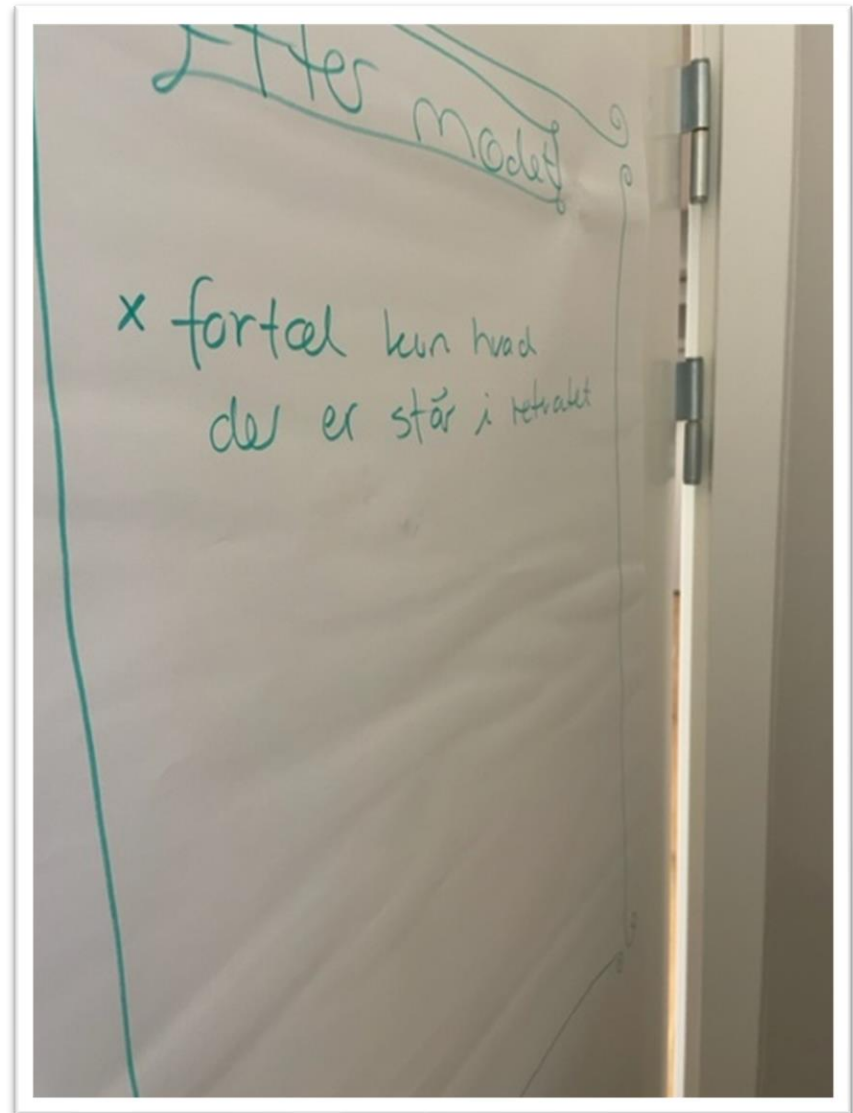 Efter mødet
x fortæl kun hvad
der er står i retvatet